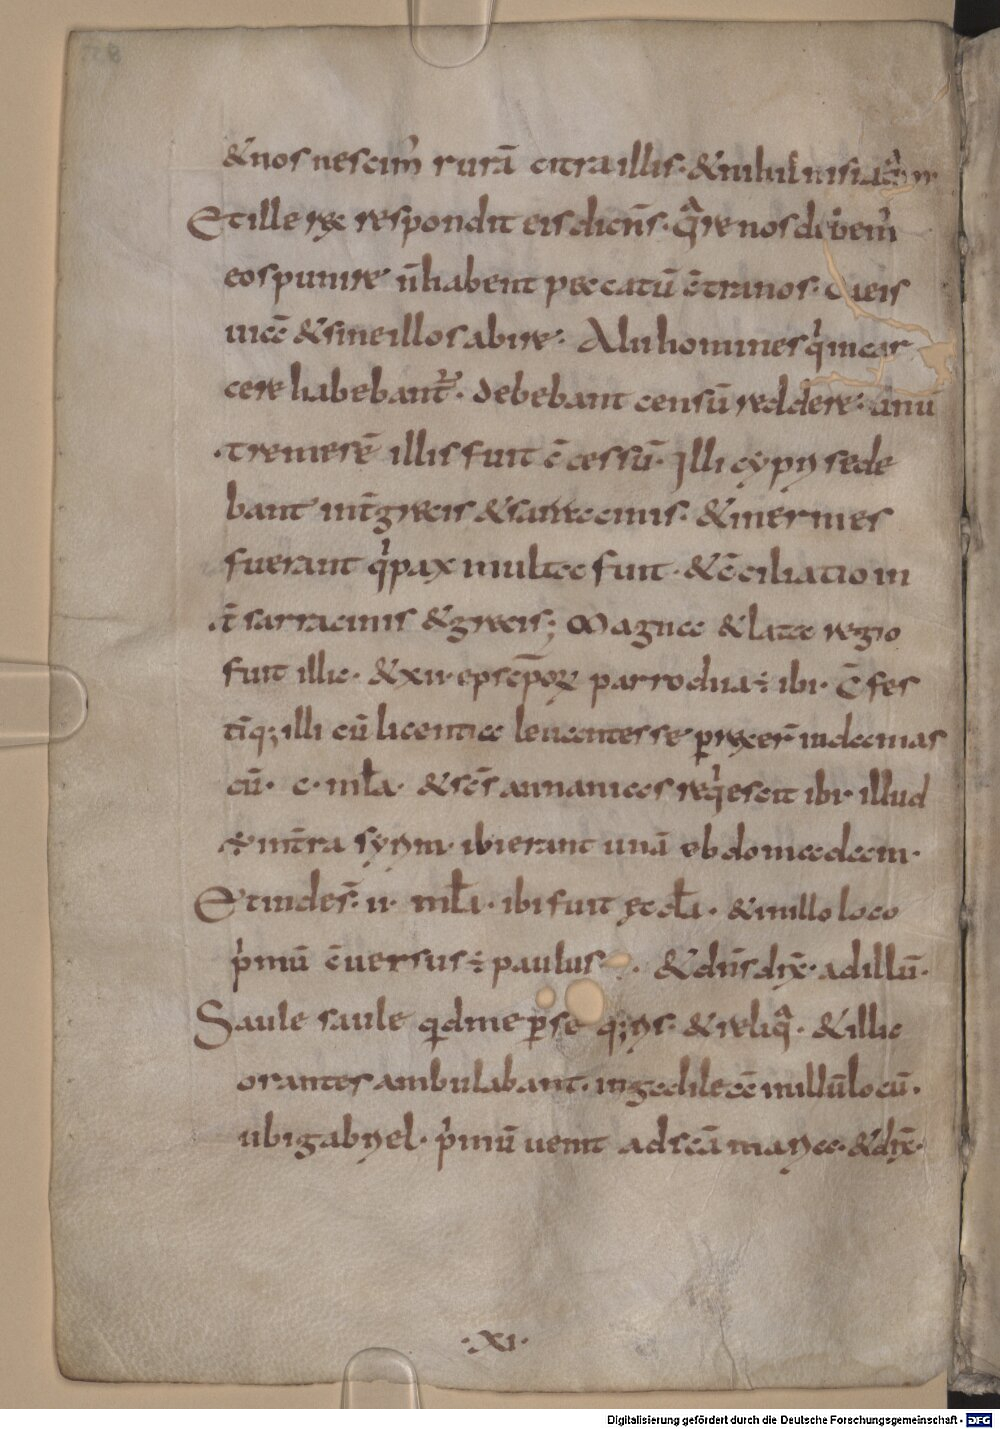 & nos nescim̄ rurā citra illis · & nihil nisi aquā
Et ille rex respondit eis dicn̄s · Quare nos debem̄
eos punire n̄ habent peccatū c̄tra nos · d eis
uicā & sine illos abire · Alii homines qui in car
cere habebant᷑ · debebant censū reddere · anu
· tremesē illis fuit c̄cessū · Illi cypri sede
bant int̄ grecis & sarrecinis · & inermes
fuerant qi pax multa fuit · & c̄ciliatio in
· t̄ sarracinis & grecis ; Magna & lata regio
fuit illic · & xii · epsc̄poꝝ parrochia ÷ ibi · C̄fes
tīq; illi cū licentia leuantes se p̱rexer̄ in damas
cū · c · mł̄a · & sc̄s annanias req̇escit ibi · illud
÷ int̄ra syriā · ibi erant unā ebdomadam ·
Et in des̄ · ii · mł̄a · ibi fuit æccł̄a · & in illo loco
p̍mū c̄uersus ÷ paulus · & dn̄s dix̄ · ad illū ·
Saule saule qd me p̱seq;ris · & reliq̄ · & illic
orantes ambulabant · in galileā in illū locū ·
ubi gabriel · p̍mū uenit ad scā maria · & dix̄ ·
· XI ·
Digitalisierung gefördert durch die Deutsche Forschungsgemeinschaft - DFG